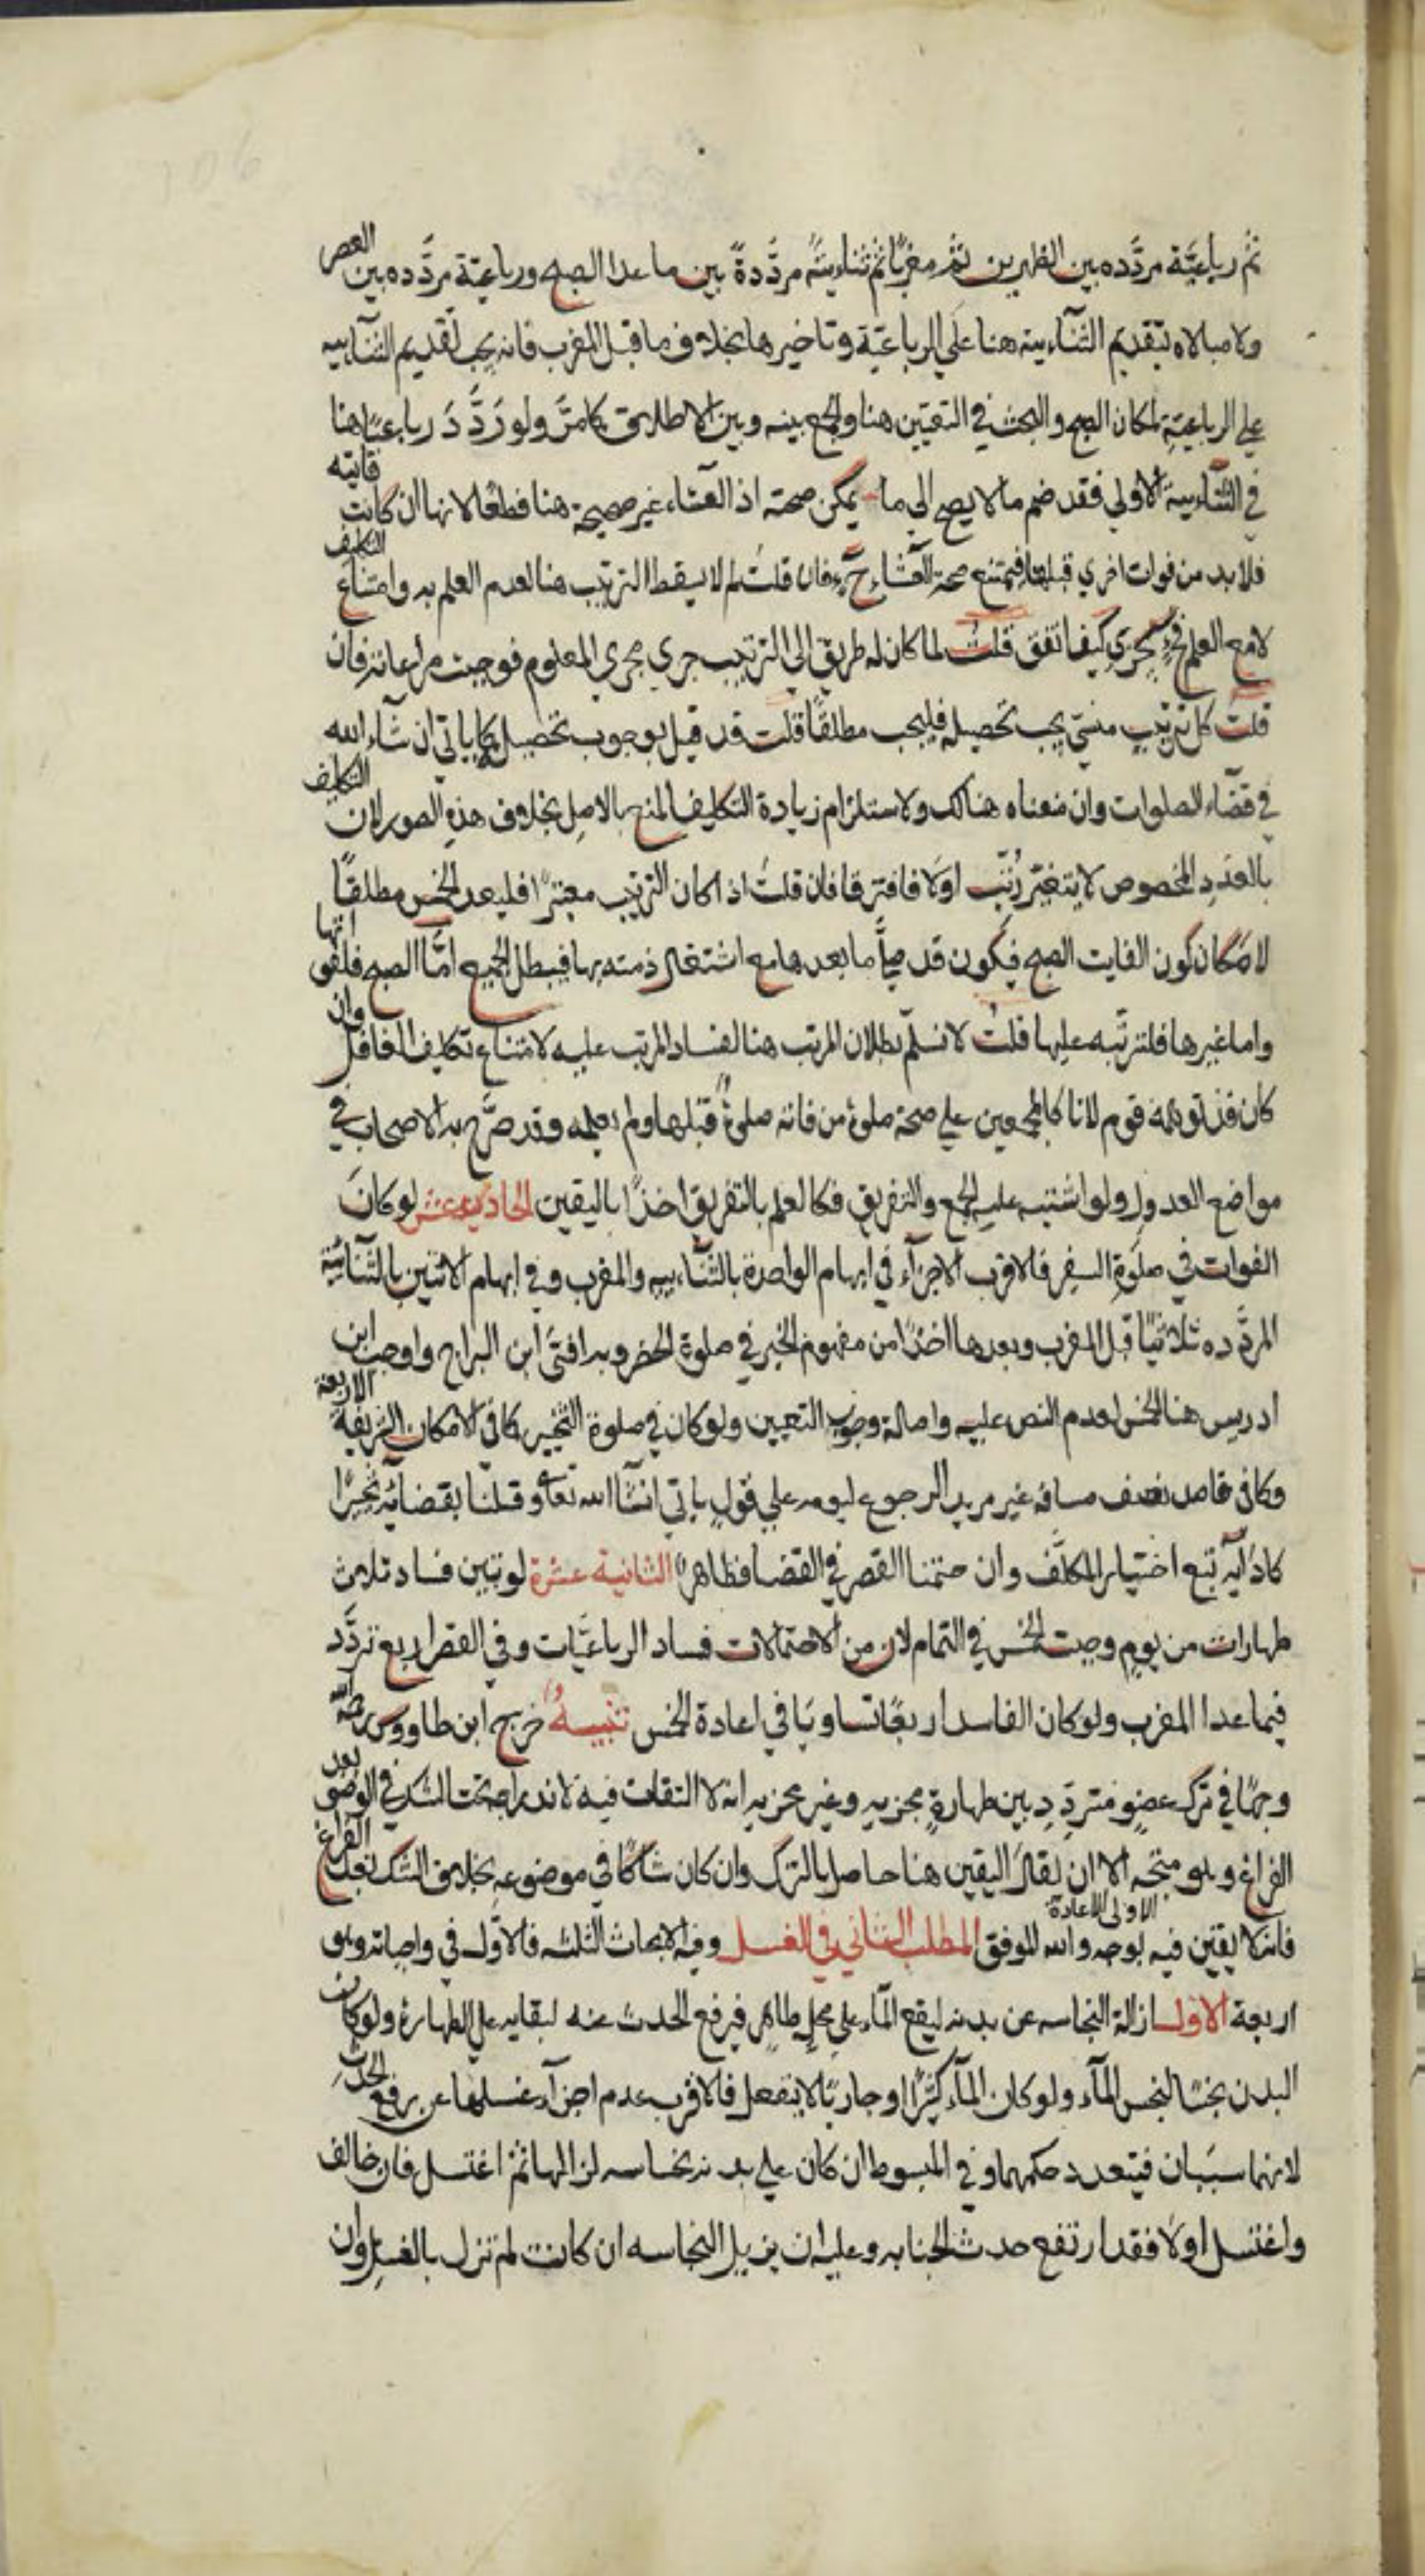 ثم رباعيّة مردّده بين الظهرين ثم مغربًا ثم ثنائيةً مردّدةً بين ما عدا الصبح ورباعيّة مردّده بين العصر
ولا مبالاه بتقديم الثنآئيته هنا علي الرباعيّة وتاخيرها بخلاف ما قبل المغرب فانه يجب تقديم الثنآييه
علي الرباعيّةِ لمكان الصبح والبحث في التعيين هنا والجمع بينه وبين الاطلاق كما مرّ ولو رَدَّدَ رباعيًا هنا
في الثنآئية الاولي فقد ضم ما لا يصح الي ما يمكن صحته اذ العشاء غير صحيحة هنا قطعًا لانها ان كانت فايته
فلا بد من فوات اخري قبلها فيمتنع صحة العشاء حٓ فان قلتَ لم لا يسقط الترتيب هنا لعدم العلم به وامتناع التكليف
لا مع العلم فيجزي كيف اتفق قلتُ لما كان له طريق الي الترتيب جري مجري المعلوم فوجبت مراعاته فان
قلتَ كل ترتيبٍ منسيّ يجب تحصيله فليجب مطلقًا قلت قد قيل بوجوب تحصيله كما ياتي ان شآء الله
في قضآء الصلوات وان منعناه هنالك ولاستلزام زيادة التكليف المنفي بالاصل بخلاف هذه الصور لان التكليف
بالعدَدِ المخصوص لا يتغيّر رُتّب اوَلا فافترقا فان قلتَ اذا كان الترتيب معتبرًا فليعد الخمس مطلقًا
لامكان كون الفايت الصبح فيكون قد صلّي ما بعدها مع اشتغال ذمته بها فيبطل الجميع امّا الصبح فلفواتها
واما غيرها فلترتّبه عليها قلتُ لا نسلّم بطلان المرتب هنا لفساد المرتب عليه لامتناع تكليف الغافل وان
كان قد توهمه قوم لانا كالمجمعين علي صحة صلوة من فاته صلوةٌ قبلها ولم يعلمه وقد صرّح به الاصحاب في
مواضع العدول ولو اشتبه عليه الجمع والتفريق فكالعلم بالتفريق اخذًا باليقين الحاديه عشر لو كانَ
الفوات في صلوةِ السفر فالاقرب الاجزآء في ابهام الواحدة بالثنآءييه والمغرب وفي ابهام الاثنين بالثنائية
المردّده ثلاثيًا قبل المغرب وبعدها اخذًا من مفهوم الخبر في صلوة الحضر وبه افتى ابن البراج واوجب ابن
ادريس هنا الخمس لعدم النص عليه واصالة وجوب التعيين ولو كان في صلوة التخيير كما في الامكان الشريفة الاربعة
وكما في قاصد نصف مسافه غير مريد الرجوع ليومه علي قولٍ ياتي انشآ الله تعا وقلنا بقضائه مخيّرًا
كادآئه تبع اختيار المكلّف وان حتمنا القصر في القضا فظاهرٌ الثانية عشرة لو تبين فساد ثلاث
طهارات من يومٍ وجبت الخمس في التمام لان من الاحتمالات فساد الرباعيّات وفي القصر اربع تردّد
فيما عدا المغرب ولو كان الفاسد اربعًا تساويَا في اعادة الخمس تنبيهٌ خرج ابن طاووس رحمه الله
وجهًا في ترك عضوٍ متردِّدٍ بين طهارةٍ مجزيه وغير مجزيه انه لا التفات فيه لاندراجه تحت الشك في الوضو بعد
الفراغ وهو متجه الا ان يقال اليقين هنا حاصل بالترك وان كان شاكًا في موضوعه بخلاف الشك بعد الفراغ
الاولى الاعادة
فانه لا يقين فيه بوجه والله الموفق المطلب الثاني في الغسل وفيه الابحاث الثلثه فالاوّل في واجباته وهو
اربعة الاول ازالة النجاسه عن بدنه ليقع المآء علي محلٍ طاهر فيرفع الحدث عنه لبقايه علي الطهارة ولو كان
البدن نجسًا لنجس المآء ولو كان المآء كثيرًا او جاريًا لا ينفعل فالاقرب عدم اجزآء غسلها عن رفع الحدث
لانهما سببَان فيتعدد حكمهما وفي المبسوط ان كان علي بدنه نجاسه ازالها ثم اغتسل فان خالف
واغتسل اولا فقد ارتفع حدث الجنابه وعليه ان يزيل النجاسه ان كانت لم تزل بالغسل وان